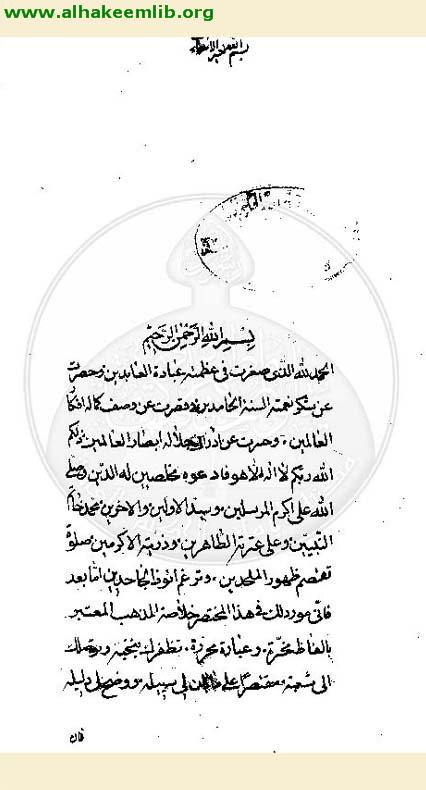 www.alhakeemlib.org
بسم الله خير الأسماء
بسم الله الرحمن الرحيم
الحمد لله الذى صغرت فى عظمته عبادة العابدين وحصرت
عن شكر نعمته السنة الحامدين وقصرت عن وصف كماله افكار
العالمين وحسرت عن ادراك جلاله ابصار العالمين ذلكم
الله ربكم لا اله الا هو فادعوه مخلصين له الدين وصلى
الله على اكرم المرسلين وسيد الاولين والاخرين محمد خاتم
النبيين وعلى عترته الطاهرين وذريته الاكرمين صلوة
تقصم ظهور الملحدين وترغم انوف الجاحدين اما بعد
فانى مورد لك فى هذا المختصر خلاصة المذهب المعتبر
بالفاظ محررة وعبادة محررة تظفرك بنخبه وتوصلك
الى شعبه مقتصرا على ما بان لى سبيله ووضح لى دليله
فان